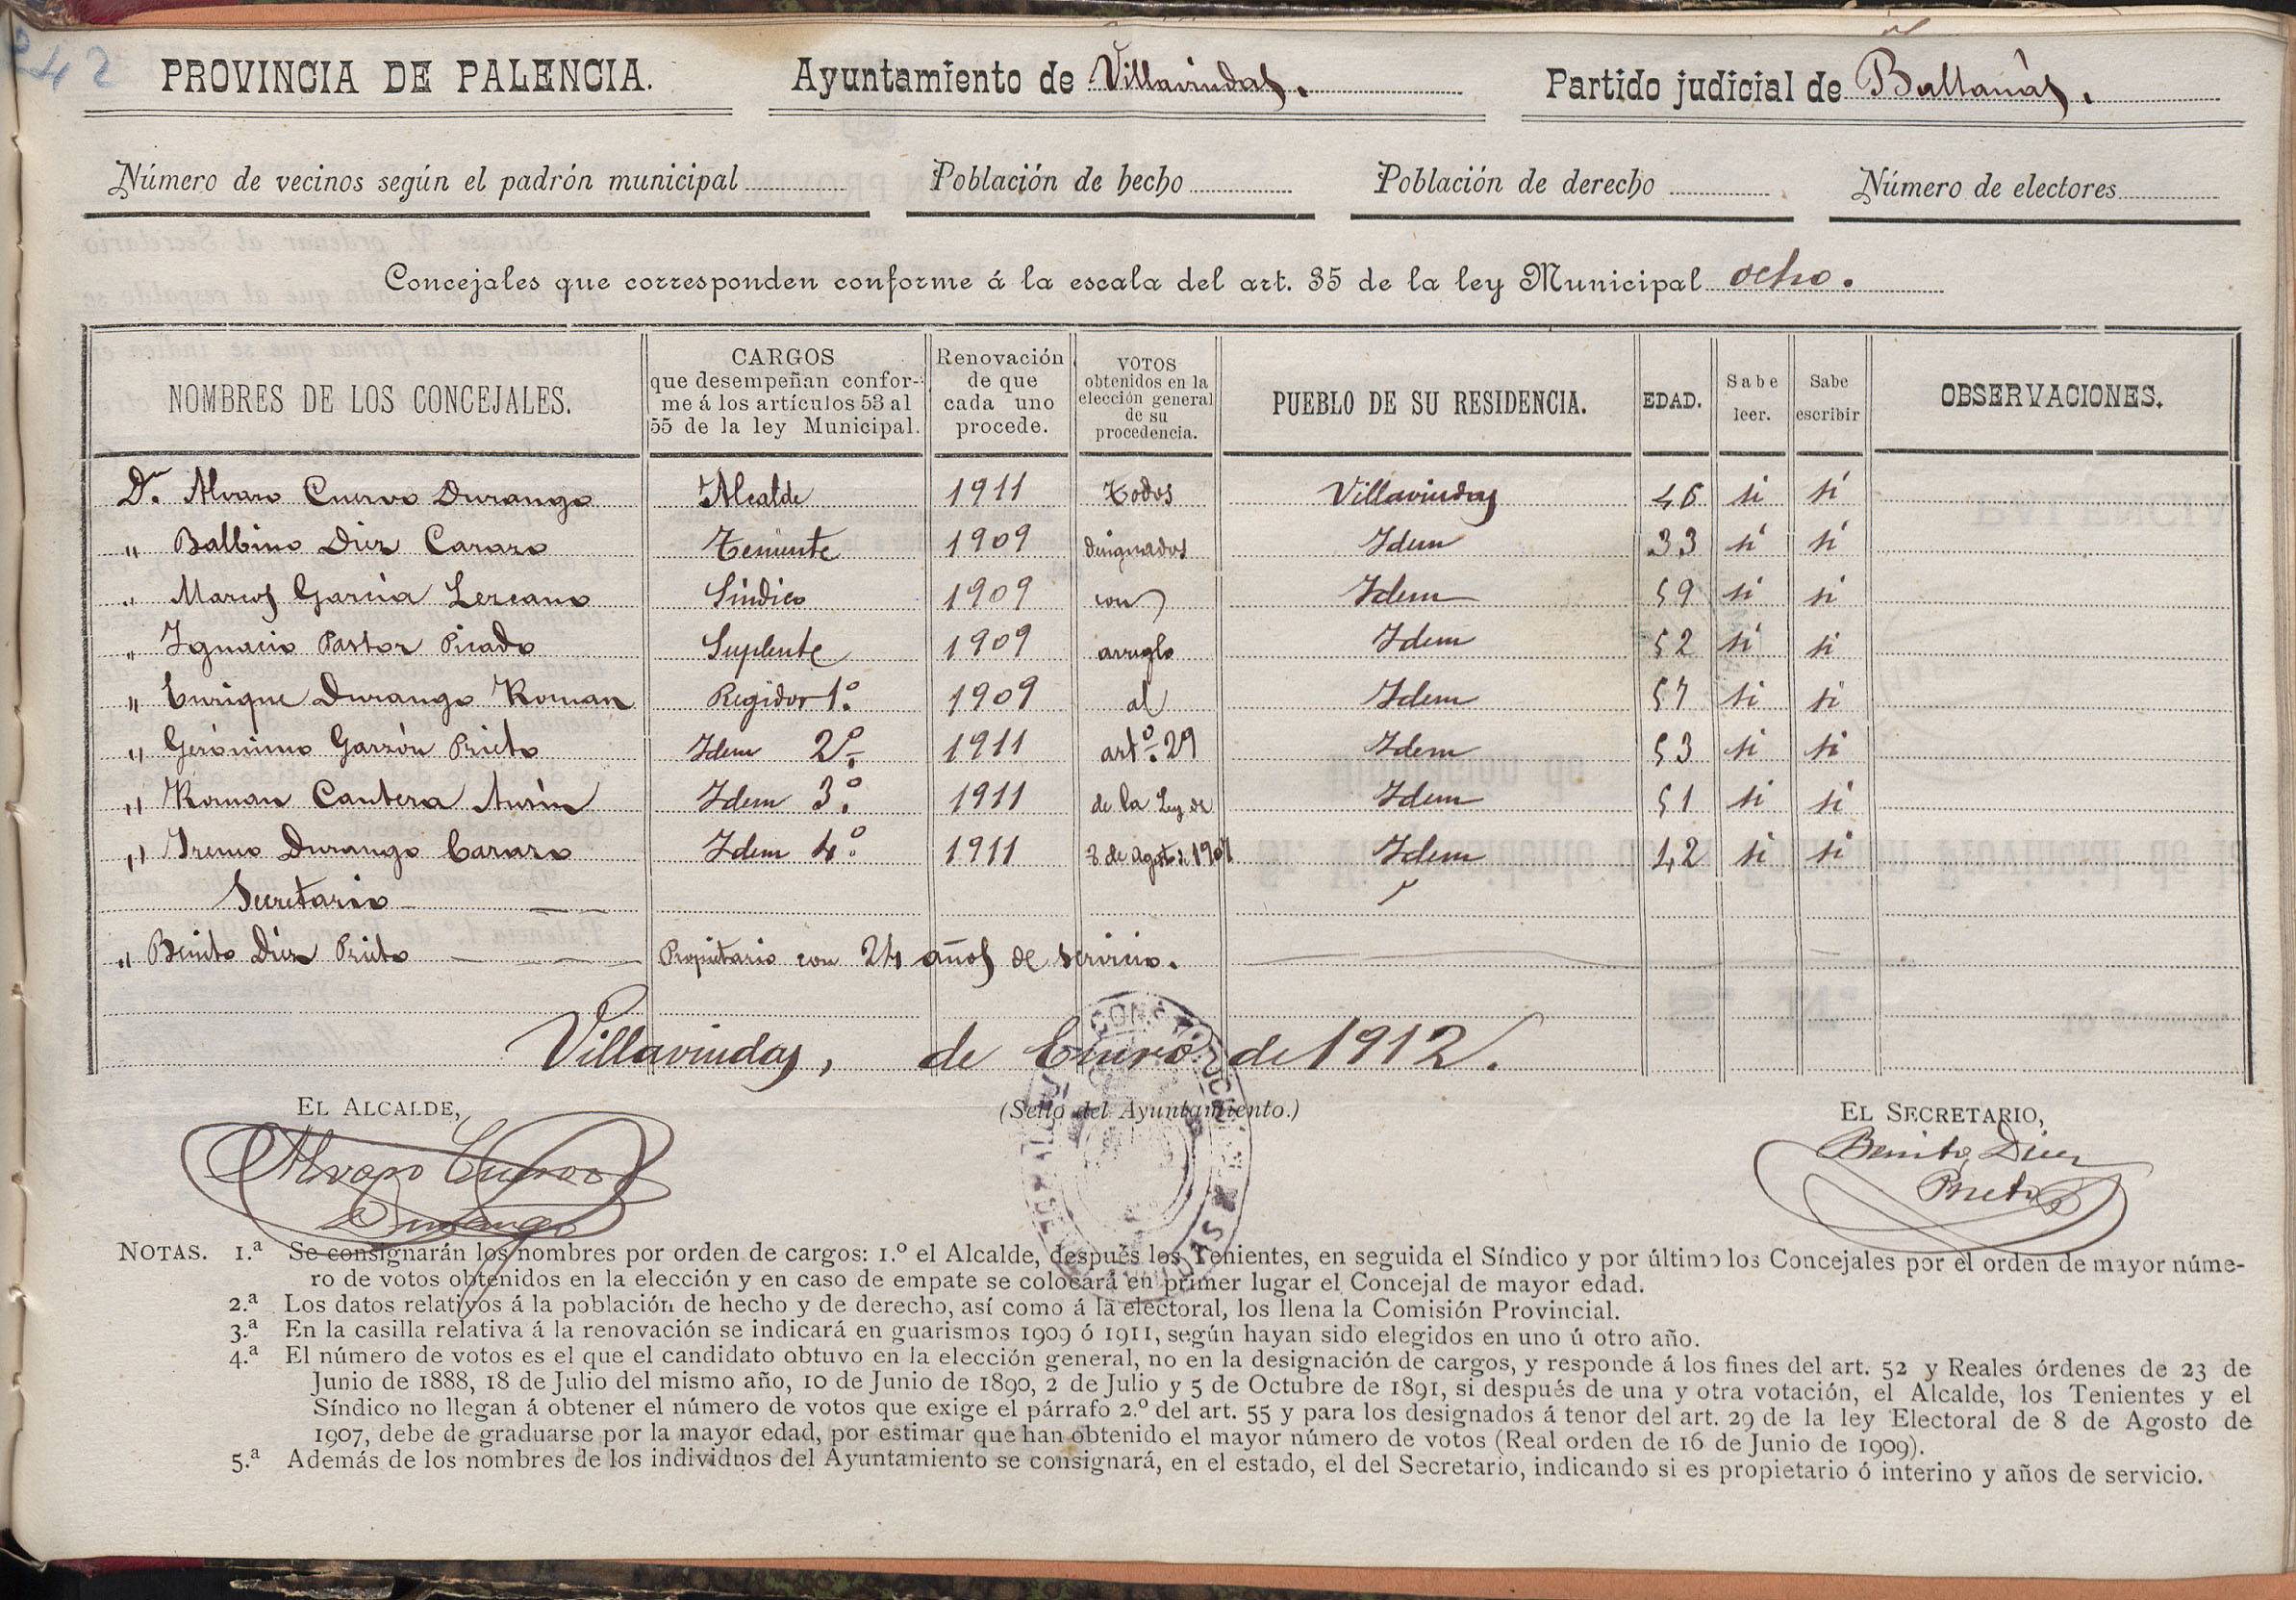 242
PROVINCIA DE PALENCIA. Ayuntamiento de Villaviudas. Partido judicial de Baltanás.
Número de vecinos según el padrón municipal Población de hecho Población de derecho Número de electores
Concejales que corresponden conforme á la escala del art. 35 de la ley Municipal ocho.
NOMBRES DE LOS CONCEJALES. CARGOS que desempeñan confor- me á los artículos 53 al 55 de la ley Municipal. Renovación de que cada uno procede. VOTOS obtenidos en la elección general de su procedencia. PUEBLO DE SU RESIDENCIA. EDAD. Sabe leer. Sabe escribir OBSERVACIONES.
Dn. Alvaro Cuervo Durango Alcalde 1911 Todos Villaviudas 46 si si
" Balbino Diez Cararo Teniente 1909 designados Idem 33 si si
" Marcos García Lezcano Síndico 1909 con Idem 59 si si
" Ignacio Pastor Picado Suplente 1909 arreglo Idem 52 si si
" Enrique Durango Roman Regidor 1º. 1909 al Idem 57 si si
" Gerónimo Garzón Prieto Idem 2º. 1911 artº. 29 Idem 53 si si
" Roman Cantera Idem 3º. 1911 de la Ley de Idem 51 si si
" Ireneo Durango Cararo Idem 4º. 1911 8 de agosto de 1907 Idem 42 si si
Secretario
" Benito Díez Prieto Propietario con 24 años de servicio.
Villaviudas, de Enero de 1912.
EL ALCALDE, (Sello del Ayuntamiento.) EL SECRETARIO,
Alvaro Cuervo Durango
Benito Diez Prieto
NOTAS. 1.ª Se consignarán los nombres por orden de cargos: 1.º el Alcalde, después los Tenientes, en seguida el Síndico y por último los Concejales por el orden de mayor núme-
ro de votos obtenidos en la elección y en caso de empate se colocará en primer lugar el Concejal de mayor edad.
2.ª Los datos relativos á la población de hecho y de derecho, así como á la electoral, los llena la Comisión Provincial.
3.ª En la casilla relativa á la renovación se indicará en guarismos 1909 ó 1911, según hayan sido elegidos en uno ú otro año.
4.ª El número de votos es el que el candidato obtuvo en la elección general, no en la designación de cargos, y responde á los fines del art. 52 y Reales órdenes de 23 de
Junio de 1888, 18 de Julio del mismo año, 10 de Junio de 1890, 2 de Julio y 5 de Octubre de 1891, si después de una y otra votación, el Alcalde, los Tenientes y el
Síndico no llegan á obtener el número de votos que exige el párrafo 2.º del art. 55 y para los designados á tenor del art. 29 de la ley Electoral de 8 de Agosto de
1907, debe de graduarse por la mayor edad, por estimar que han obtenido el mayor número de votos (Real orden de 16 de Junio de 1909).
5.ª Además de los nombres de los individuos del Ayuntamiento se consignará, en el estado, el del Secretario, indicando si es propietario ó interino y años de servicio.